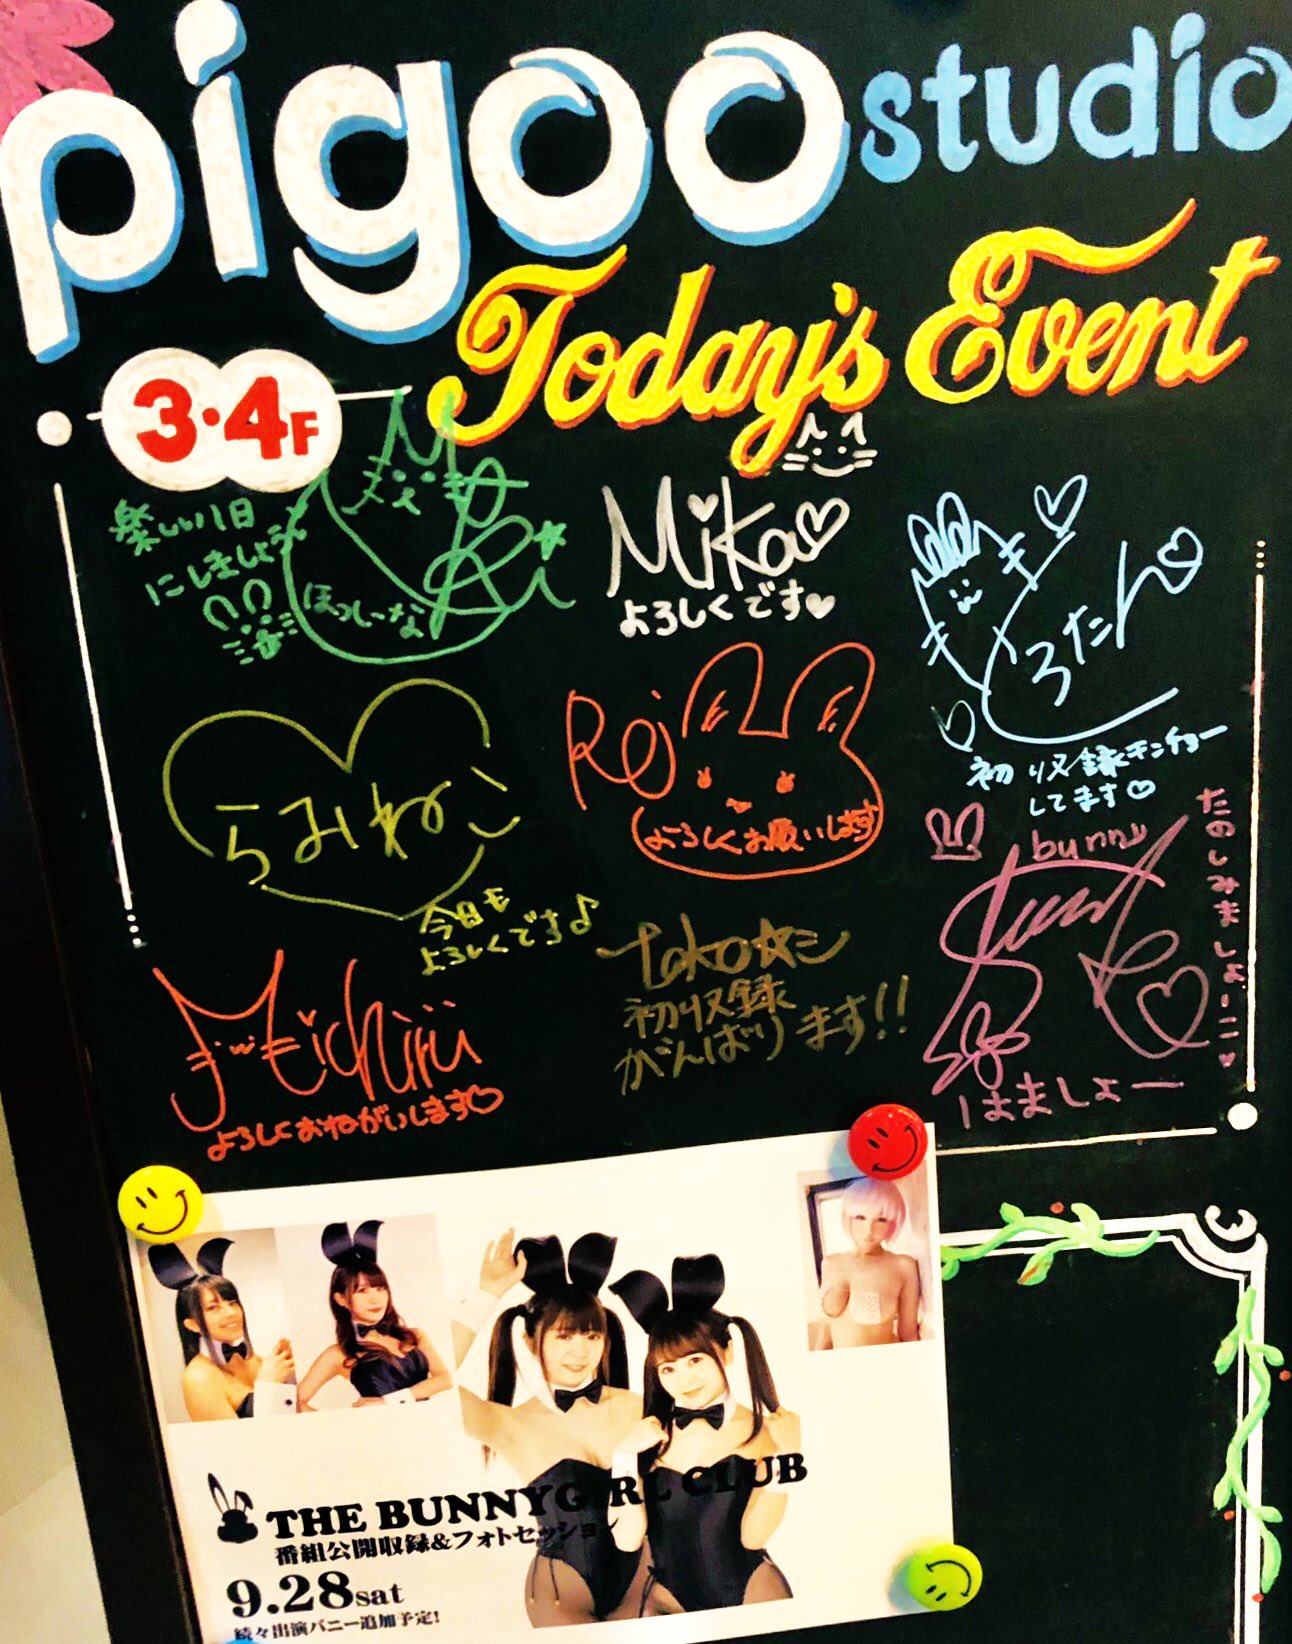 pigoo studio
Today's Event
3・4F
楽しい1日
にしましょう
ほっしーな
Mika
よろしくです
ろたん
初収録キンチョー
してます
らみね
今日も
よろしくです♪
Rei
よろしくお願いします
bunny
たのしみましょーに
はましょー
Michiru
よろしくおねがいします
toko☆
初収録
がんばります!!
THE BUNNYGIRL CLUB
番組公開収録&フォトセッション
9.28sat
続々出演バニー追加予定!